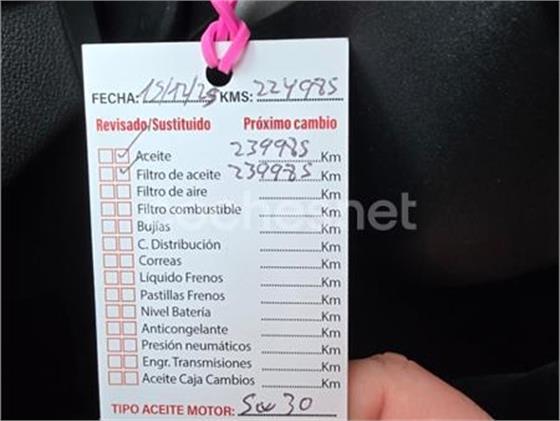 FECHA: 15/12/25 KMS: 224985
Revisado/Sustituido Próximo cambio
Aceite 239985 Km
Filtro de aceite 239985 Km
Filtro de aire Km
Filtro combustible Km
Bujías Km
C. Distribución Km
Correas Km
Líquido Frenos Km
Pastillas Frenos Km
Nivel Batería Km
Anticongelante Km
Presión neumáticos Km
Engr. Transmisiones Km
Aceite Caja Cambios Km
TIPO ACEITE MOTOR: 5w30
coches.net